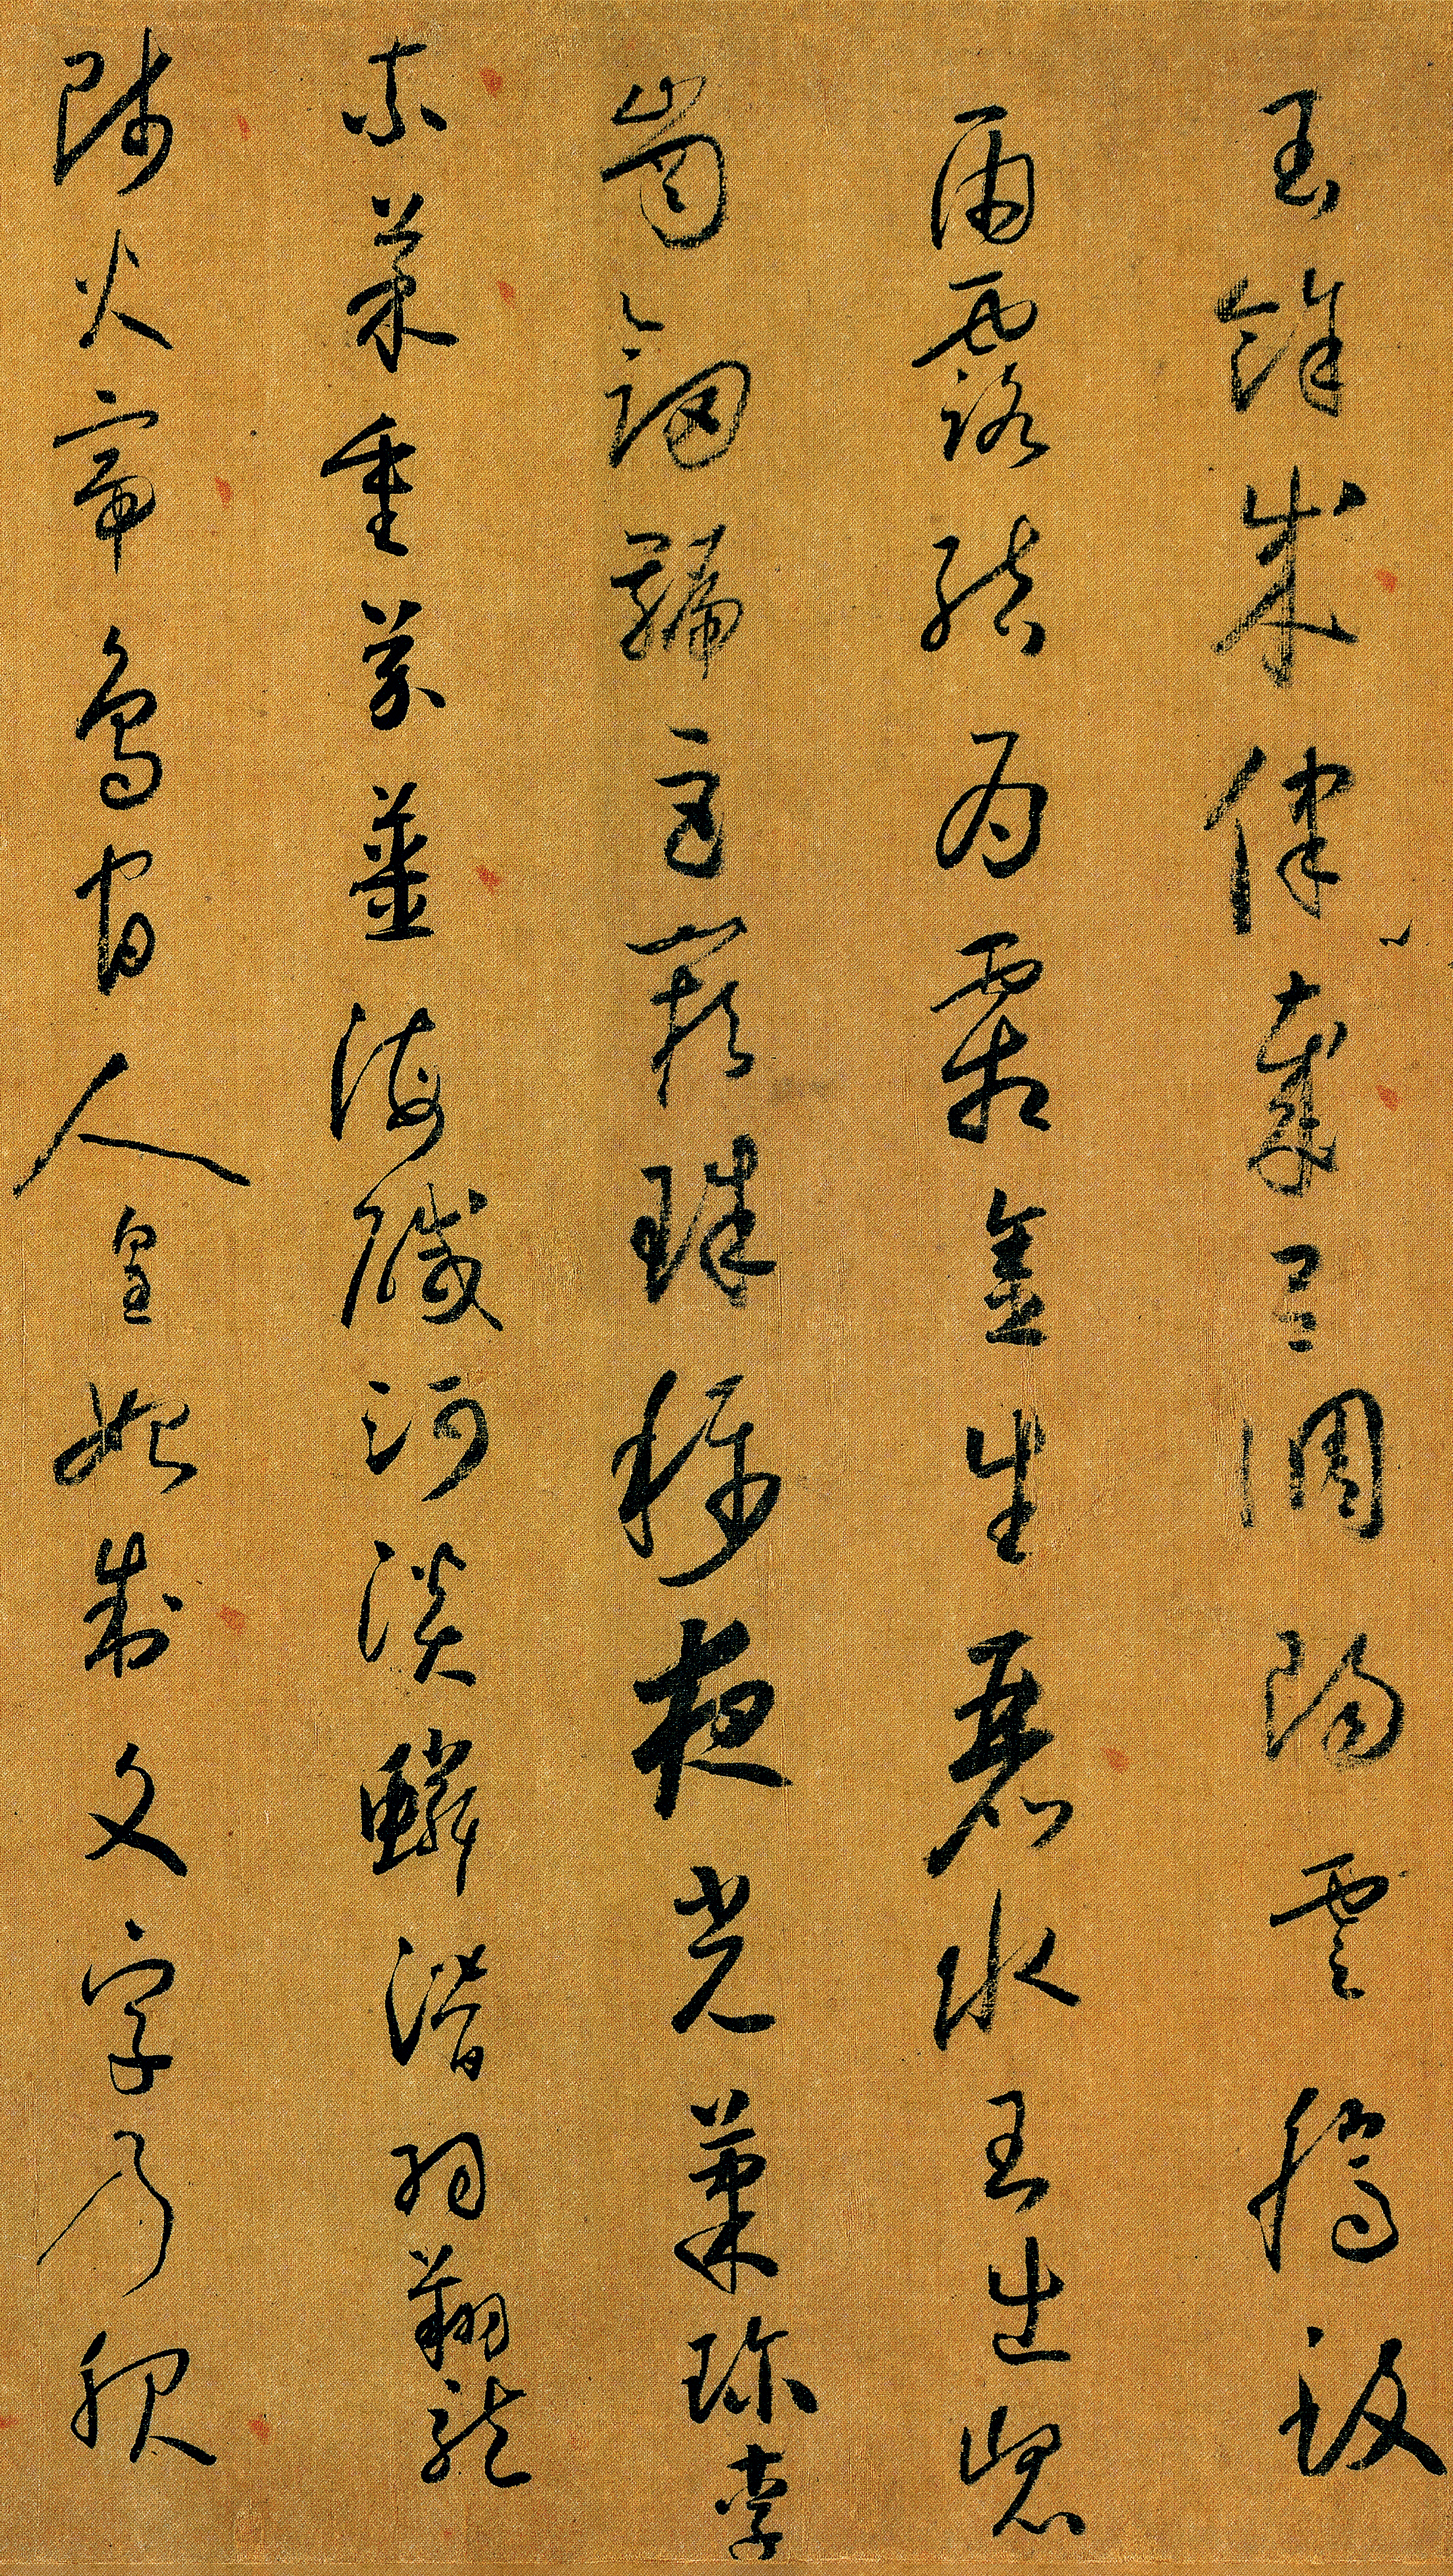 閏餘成律歲呂調陽雲騰致
雨露結為霜金生麗水玉出崑
崗劍號巨闕珠稱夜光菓珍李
柰菜重芥薑海鹹河淡鱗潛羽翔龍
師火帝鳥官人皇始制文字乃服